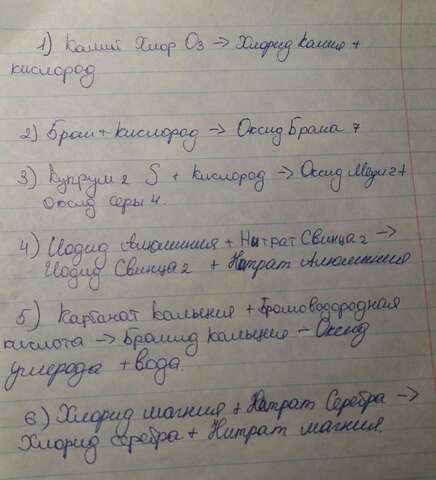 1) Калий Хлор O3 → Хлорид калия +
кислород
2) Бром + кислород → Оксид Брома 7
3) Купрум 2 S + кислород → Оксид Меди 2 +
Оксид серы 4.
4) Иодид Алюминия + Нитрат Свинца 2 →
Иодид Свинца 2 + Нитрат Алюминия
5) Карбонат кальция + Бромоводородная
кислота → Бромид кальция - Оксид
углерода + вода.
6) Хлорид магния + Нитрат Серебра →
Хлорид серебра + Нитрат магния.